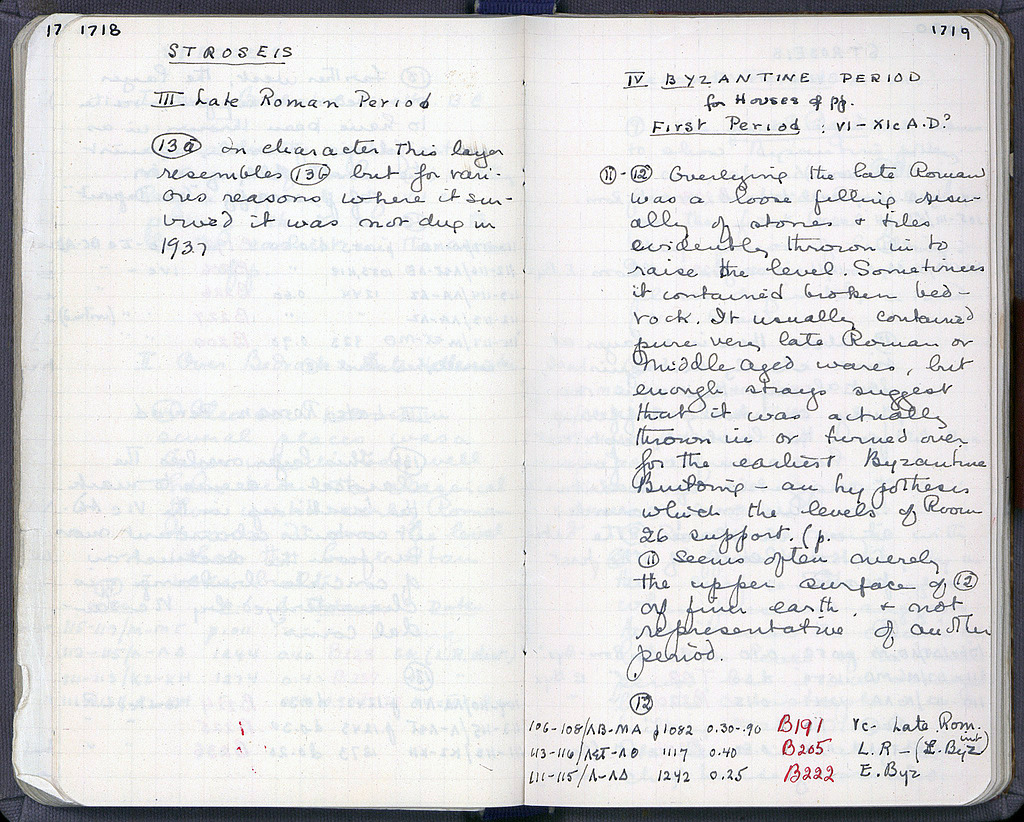 17 1718
STROSEIS
III Late Roman Period
(13a) In character this layer
resembles (13b) but for vari-
ous reasons where it sur-
vived it was not dug in
1937
1719
IV BYZANTINE PERIOD
for Houses of pp.
First Period : VI - XIc A.D?
(11) - (12) Overlying the late Roman
was a loose filling usu-
ally of stones + tiles
evidently thrown in to
raise the level. Sometimes
it contained broken bed-
rock. It usually contained
pure very late Roman or
Middle Aged wares, but
enough strays suggest
that it was actually
thrown in or turned over
for the earliest Byzantine
Building - an hypothesis
which the levels of Room
26 support. (p.
(11) seems often merely
the upper surface of (12)
of firm earth + not
representative of another
period.
(12)
106-108/ΛB-MA g1082 0.30-.90 B191 Vc- Late Rom.
113-116/ 1117 0.40 B205 L.R - (E. Byz int)
111-115/Λ-ΛΔ 1242 0.25 B222 E. Byz